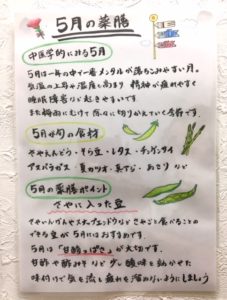 5月の薬膳
中医学的にみる5月
5月は一年の中で一番メンタルが落ちこみやすい月。
気温の上昇や湿度も高まり 精神が疲れやすく
睡眠障害など起きやすいです
また梅雨にむけて徐々に切りかえていく季節です。
5月が旬の食材
さやえんどう・そら豆・レタス・チンゲンサイ
アスパラガス 真カツオ・真アジ・あさり など
5月の薬膳ポイント
さやに入った豆
さやいんげんやスナップエンドウなど さやごと食べることの
できる豆が 5月にはおすすめです。
5月は「甘酸っぱさ」が大切です。
甘酢や酢みそなど 少し酸味を効かせた
味付けで気を流し疲れを溜めないようにしましょう